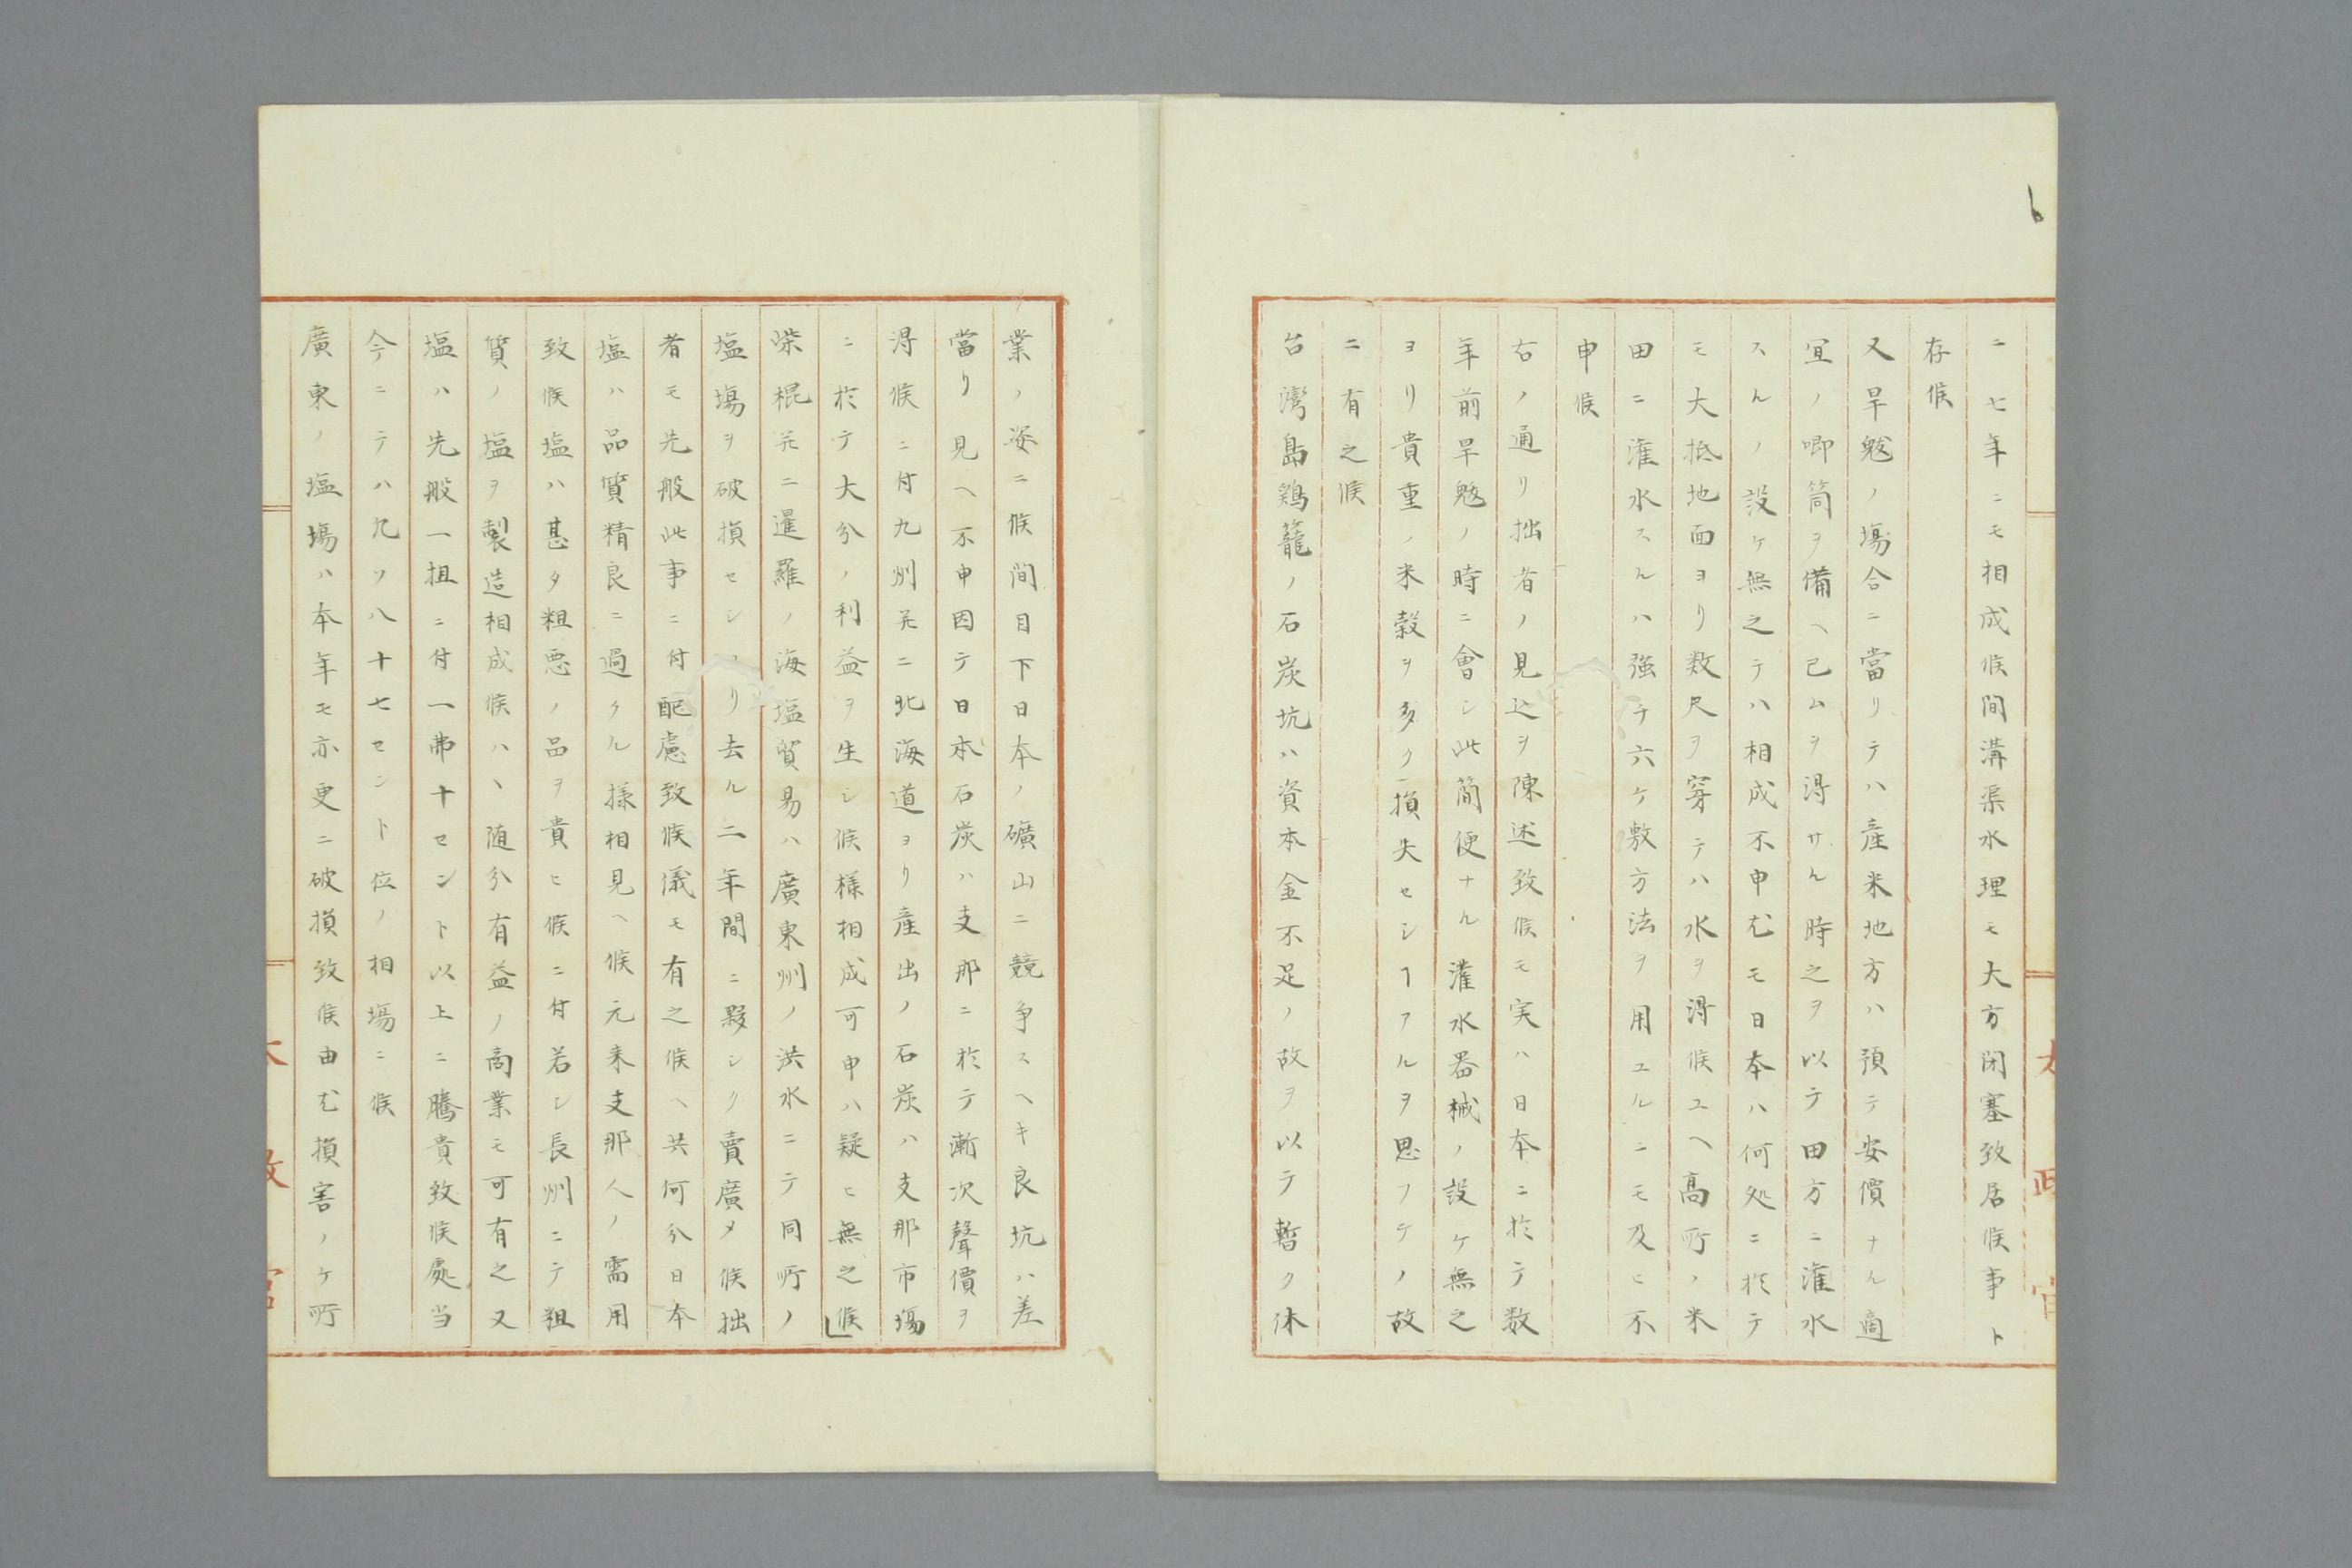 ニ七年ニモ相成候間溝渠水理モ大方閉塞致居候事ト
存候
又旱魃ノ塲合ニ當リテハ産米地方ハ預テ安價ナル適
宜ノ喞筒ヲ備ヘ已ムヲ得サル時之ヲ以テ田方ニ灌水
スルノ設ケ無之テハ相成不申尤モ日本ハ何処ニ於テ
モ大抵地面ヨリ数尺ヲ穿テハ水ヲ得候ユヘ高所ノ米
田ニ灌水スルハ強チ六ケ敷方法ヲ用ユルニモ及ヒ不
申候
右ノ通リ拙者ノ見込ヲ陳述致候モ実ハ日本ニ於テ数
年前旱魃ノ時ニ會シ此簡便ナル灌水器械ノ設ケ無之
ヨリ貴重ノ米穀ヲ多ク損失セシヿアルヲ思フケノ故
ニ有之候
台灣島鶏籠ノ石炭坑ハ資本金不足ノ故ヲ以テ暫ク休
業ノ姿ニ候間目下日本ノ礦山ニ競争スヘキ良坑ハ差
當リ見ヘ不申因テ日本石炭ハ支那ニ於テ漸次聲價ヲ
得候ニ付九州并ニ北海道ヨリ産出ノ石炭ハ支那市塲
ニ於テ大分ノ利益ヲ生シ候様相成可申ハ疑ヒ無之候
柴棍并ニ暹羅ノ海塩貿易ハ廣東州ノ洪水ニテ同所ノ
塩塲ヲ破損セシヨリ去ル二年間ニ夥シク賣廣メ候拙
者モ先般此事ニ付配慮致候儀モ有之候ヘ共何分日本
塩ハ品質精良ニ過クル様相見ヘ候元来支那人ノ需用
致候塩ハ甚タ粗悪ノ品ヲ貴ヒ候ニ付若シ長州ニテ粗
質ノ塩ヲ製造相成候ハヽ随分有益ノ商業モ可有之又
塩ハ先般一担ニ付一弗十セント以上ニ騰貴致候處当
今ニテハ九ソ八十七セント位ノ相塲ニ候
廣東ノ塩塲ハ本年モ亦更ニ破損致候由尤損害ノケ所
太政官
太政官